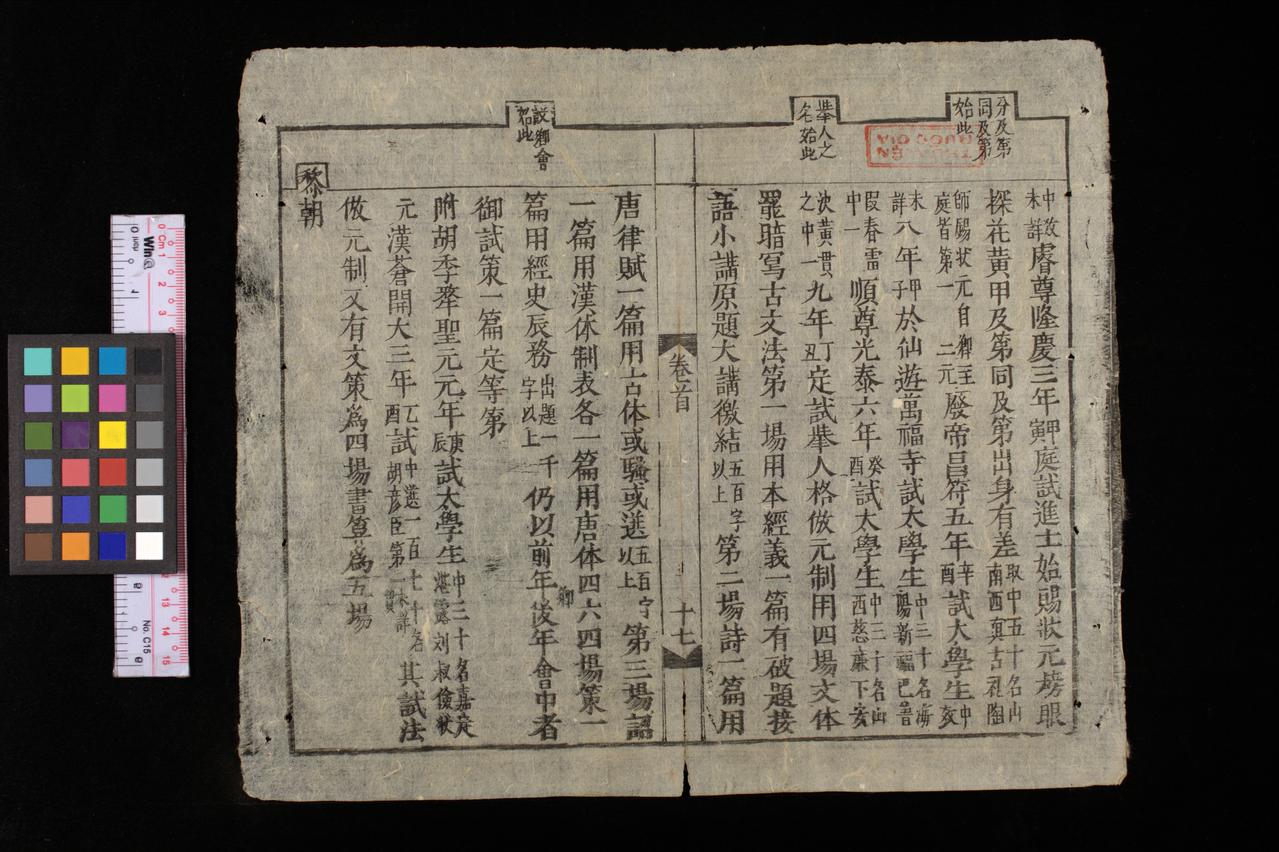 分及第
同及第
始此
舉人之
名始此
中數未詳睿尊隆慶三年甲寅庭試進士始賜狀元榜眼
探花黃甲及第同及第出身有差取中五十名山南西真古礼陶
師賜狀元自鄉至庭皆第一二元廢帝昌符五年辛酉試太學生中数
未詳八年甲子於仙遊萬福寺試太學生中三十名海陽新福巴普
段春雷中一順尊光泰六年癸酉試太學生中三十名山西慈廉下安
決黃貫之中一九年丁丑定試舉人格倣元制用四場文体
罷暗寫古文法第一場用本經義一篇有破題接
語小講原題大講徼結五百字以上第二場詩一篇用
卷首
十七
設鄉會
始此
唐律賦一篇用古体或騷或選五百字以上第三場詔
一篇用漢体制表各一篇用唐体四六四場策一
篇用經史辰務出題一千字以上仍以前年鄉後年會中者
御試策一篇定等第
附胡季犛聖元元年庚辰試太學生中三十名嘉定堪靈刘叔儉狀
元漢蒼開大三年乙酉試中選一百七十名胡彦臣第一未詳貫其試法
倣元制又有文策為四場書算為五場
黎朝